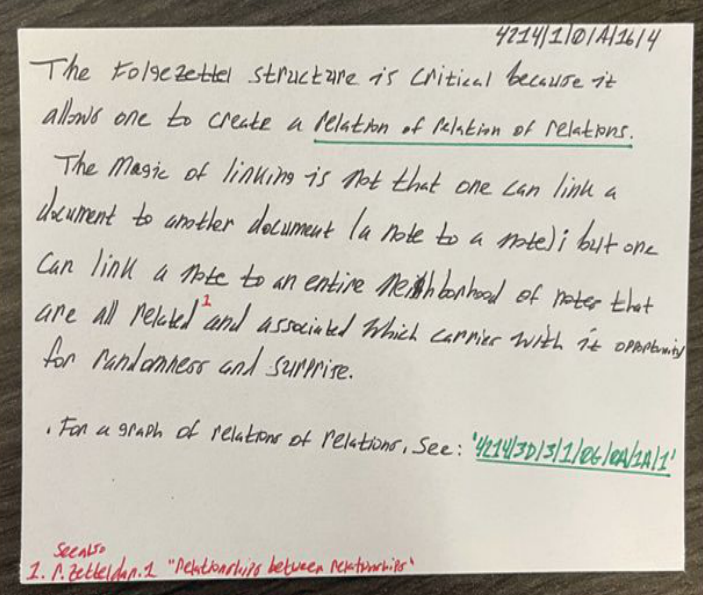 4214/1/0/A/16/4
The Folgezettel structure is critical because it
allows one to create a relation of relation of relations.
The Magic of linking is not that one can link a
document to another document (a note to a note); but one
can link a note to an entire neighborhood of notes that
are all related¹ and associated which carries with it opportunity
for randomness and surprise.
. For a graph of relations of relations, See: '4214/3D/3/1/0G/0A/1A/1'
See also
1. r.Zetteldan.1 "Relationships between relationships"